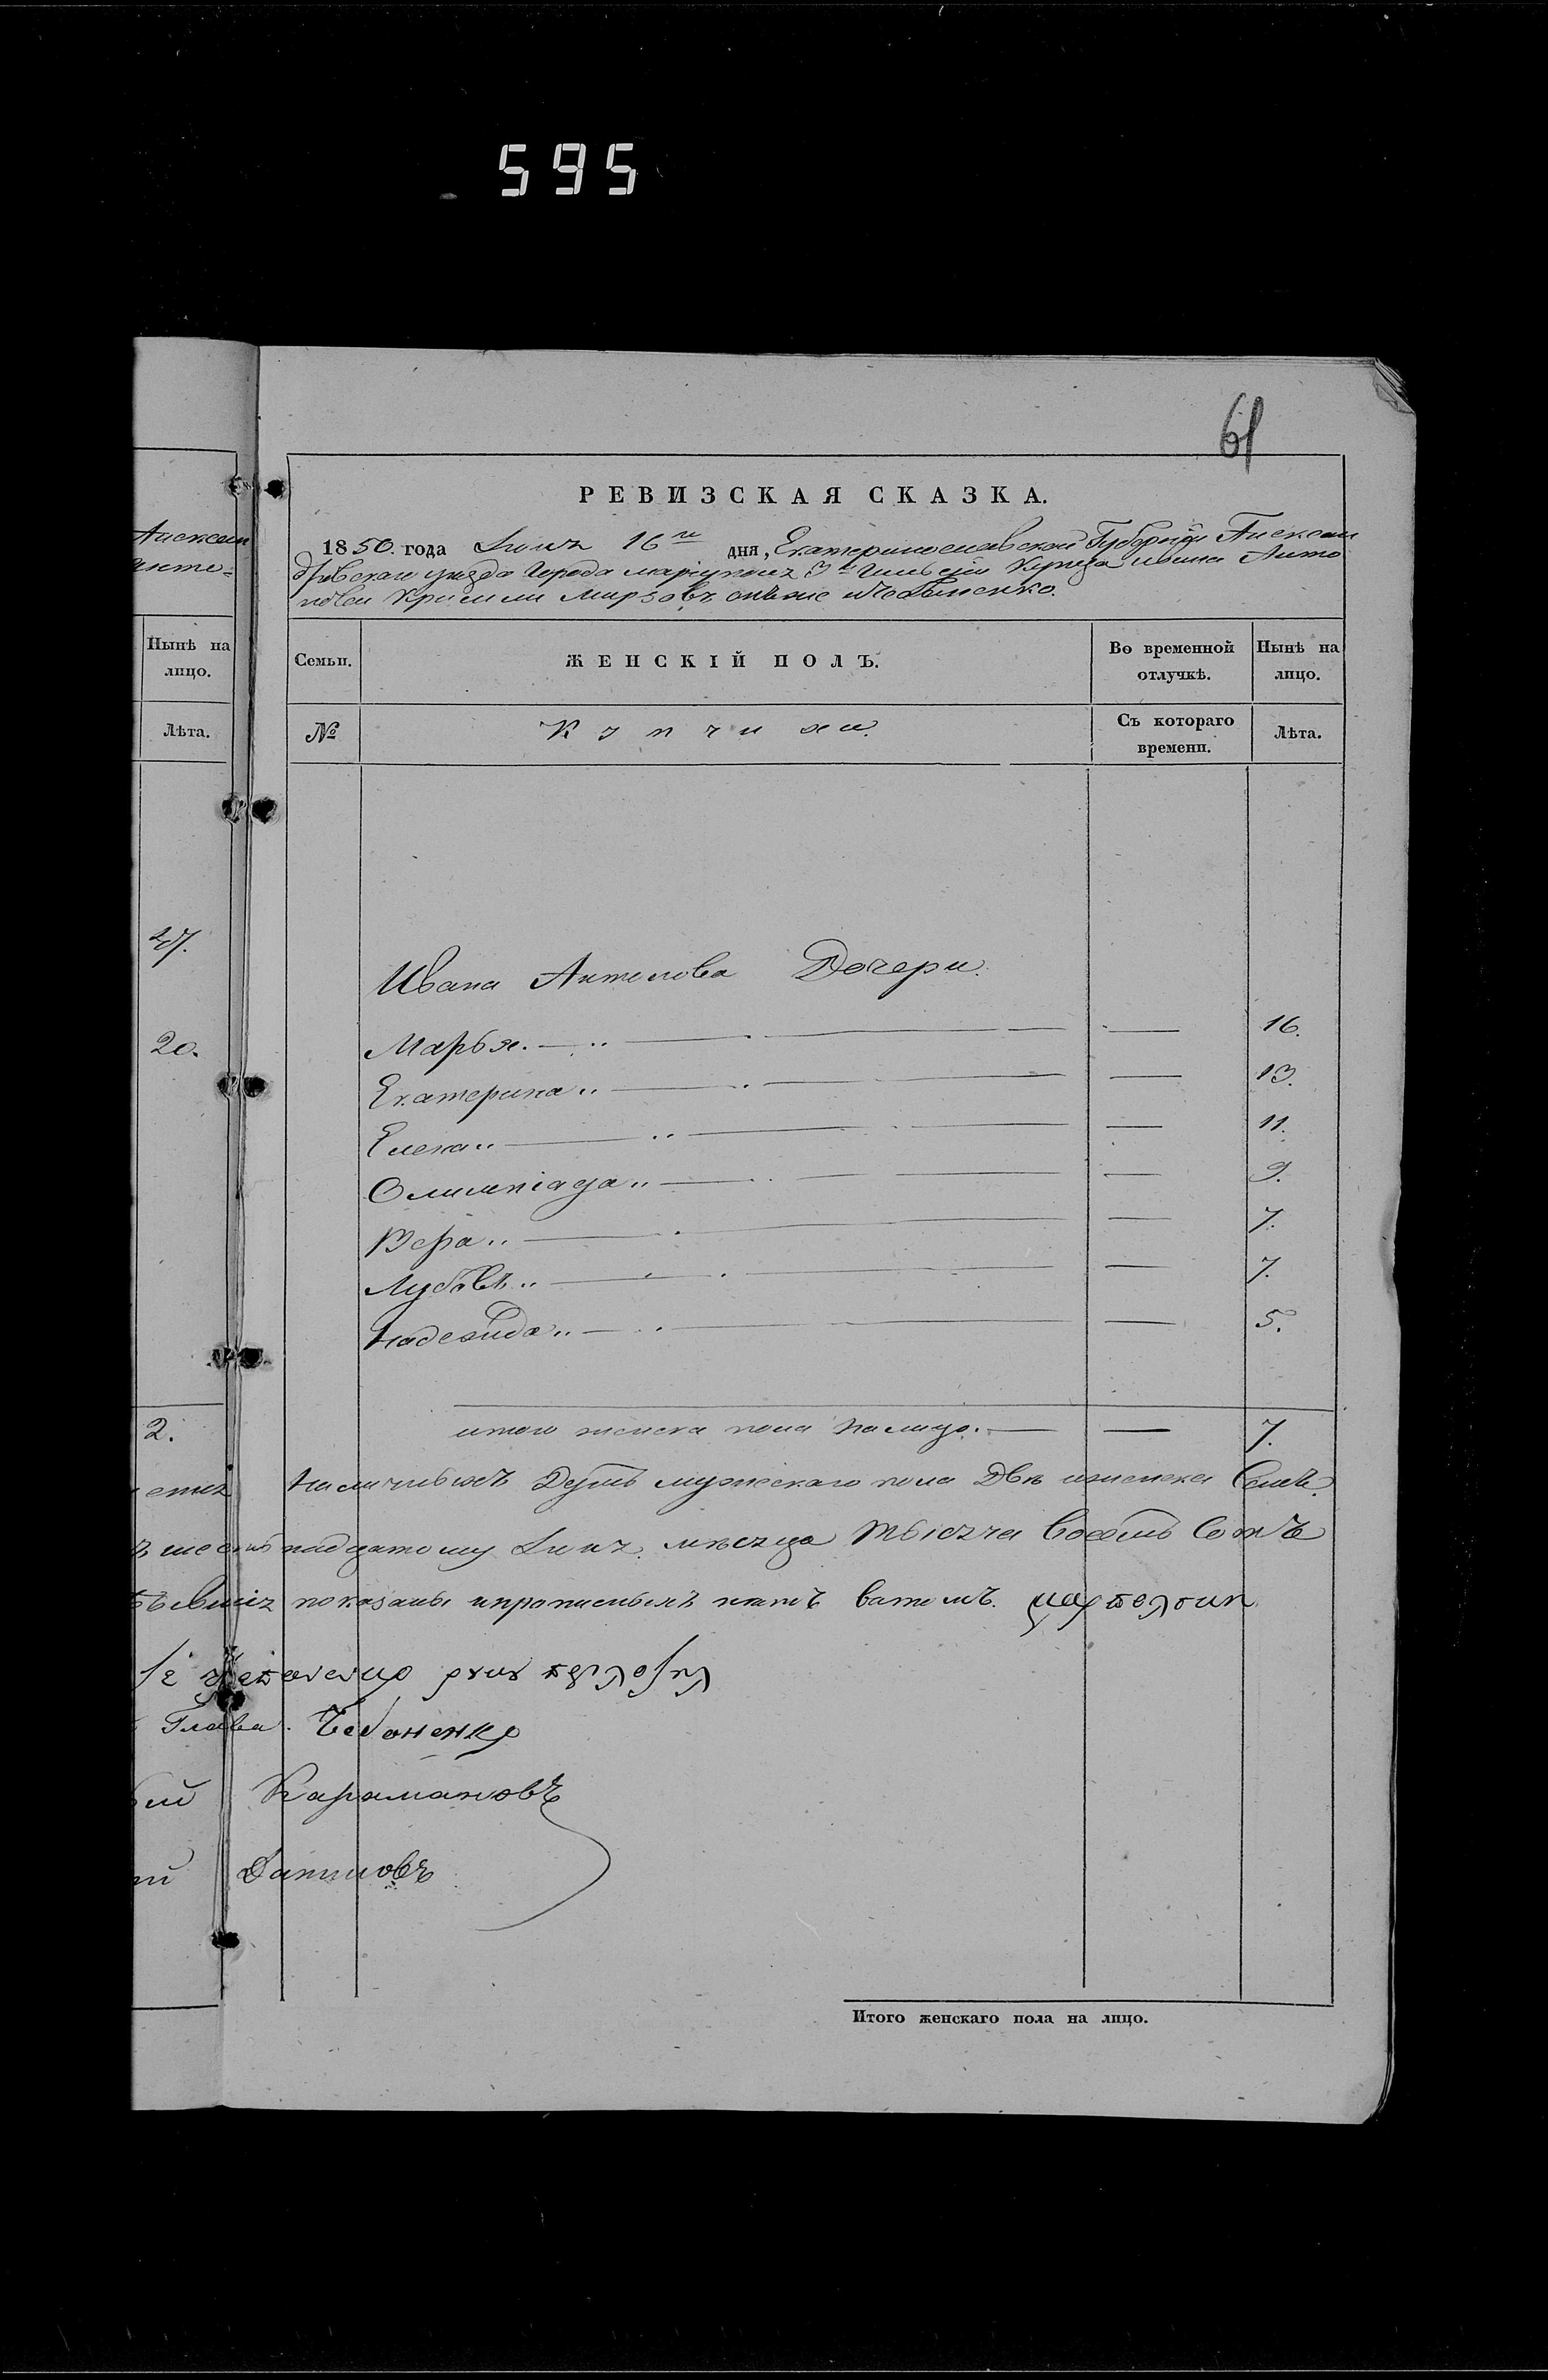 595
61
РЕВИЗСКАЯ СКАЗКА.
1850. года Іюня 16го дня, Екатеринославской Губерніи Алексан
дровскаго уѣзда Города Маріуполя 3й Гильдіи Купца Ивана Анто
нова
Нынѣ на лицо.
Семьи.
ЖЕНСКІЙ ПОЛЪ.
Во временной отлучкѣ.
Нынѣ на лицо.
Лѣта.
№
Купчихи.
Съ котораго времени.
Лѣта.
27.
Ивана Антонова Дочери.
20.
Марья. 16.
Екатерина 13.
Елена 11.
Олимпіада 9.
Вера 7.
Любовь 7.
Надежда 5.
2.
итого женска пола налицо. 7.
Наличныхъ Душъ мужескаго пола Двѣ и женска Семь.
надцатому Іюня мѣсяца Тысяча Восемь Сотъ
показаны и прописныхъ нѣтъ
Глава Чебаненко
Карамановъ
Итого женскаго пола на лицо.